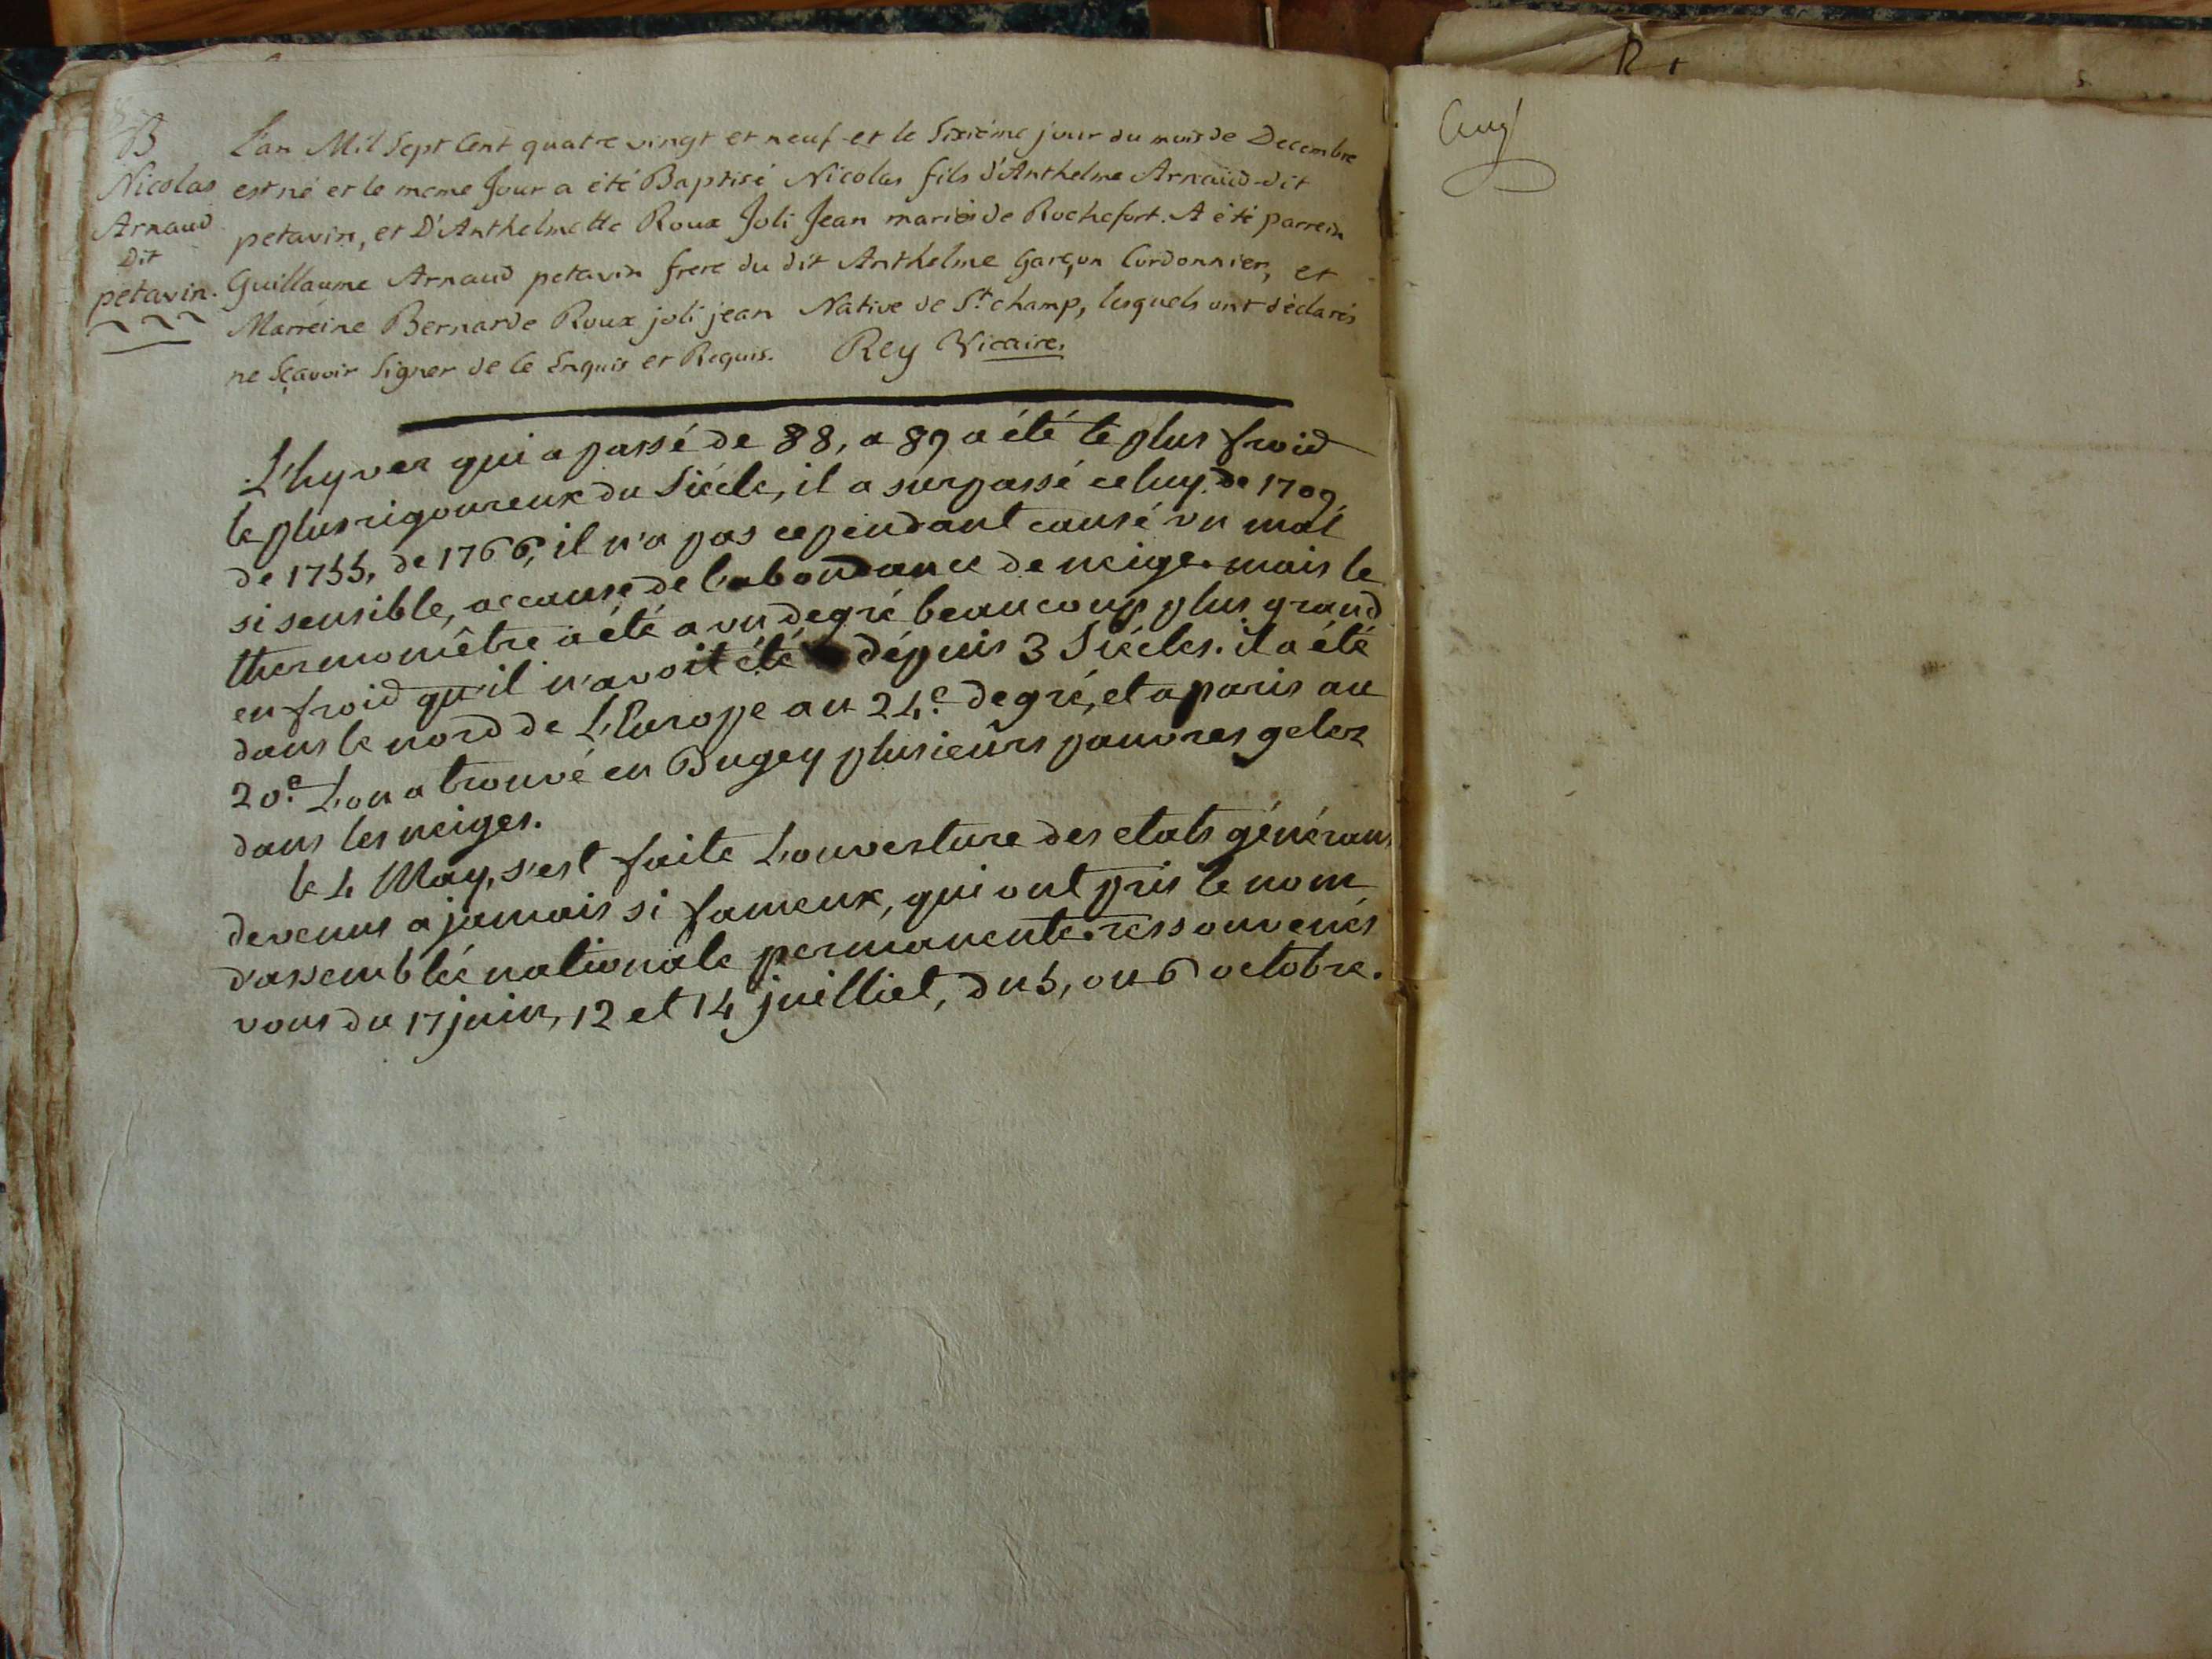 B
Nicolas
Arnaud
Dit
petavin.
L'an Mil Sept Cent quatre vingt et neuf et le Sixiéme jour du mois de Decembre
est né et le meme Jour a été Baptisé Nicolas fils d'Anthelme Arnaud dit
petavin, et D'Anthelmette Roux Joli Jean mariés de Rochefort. A été parrein
Guillaume Arnaud petavin frere du dit Anthelme Garçon Cordonnier, et
Marréine Bernarde Roux joli jean Native de St champ, lesquels ont déclarés
ne Sçavoir Signer de ce Enquis et Requis. Rey Vicaire.
L'hyver qui a passé de 88, a 89 a été le plus froid
le plus rigoureux du Siécle, il a surpassé celuy de 1709,
de 1755, de 1766, il n'a pas cependant causé un mal
si sensible, accause de l'abondance de neige. mais le
thermomêtre a été a un degré beaucoup plus grand
en froid qu'il n'avoit été dépuis 3 Siécles. il a été
dans le nord de L'Europe au 24e. degré, et a paris au
20e. L'on a trouvé en Bugey plusieurs pauvres gelez
dans les neiges.
le 4 May, s'est faite L'ouverture des etats généraux
devenus a jamais si fameux, qui ont pris le nom
d'assemblée nationale permanente. ressouvenés
vous du 17 juin, 12 et 14 juilliet, du 5, ou 6 octobre.